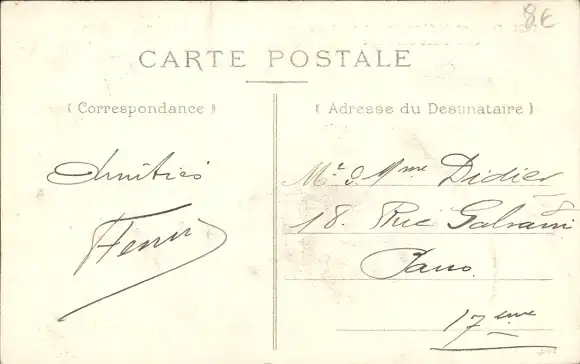 8€
CARTE POSTALE
( Correspondance )
( Adresse du Destinataire )
Amitiés
Mr & Mme Didier
18. Rue Galvani
Paris.
17ème